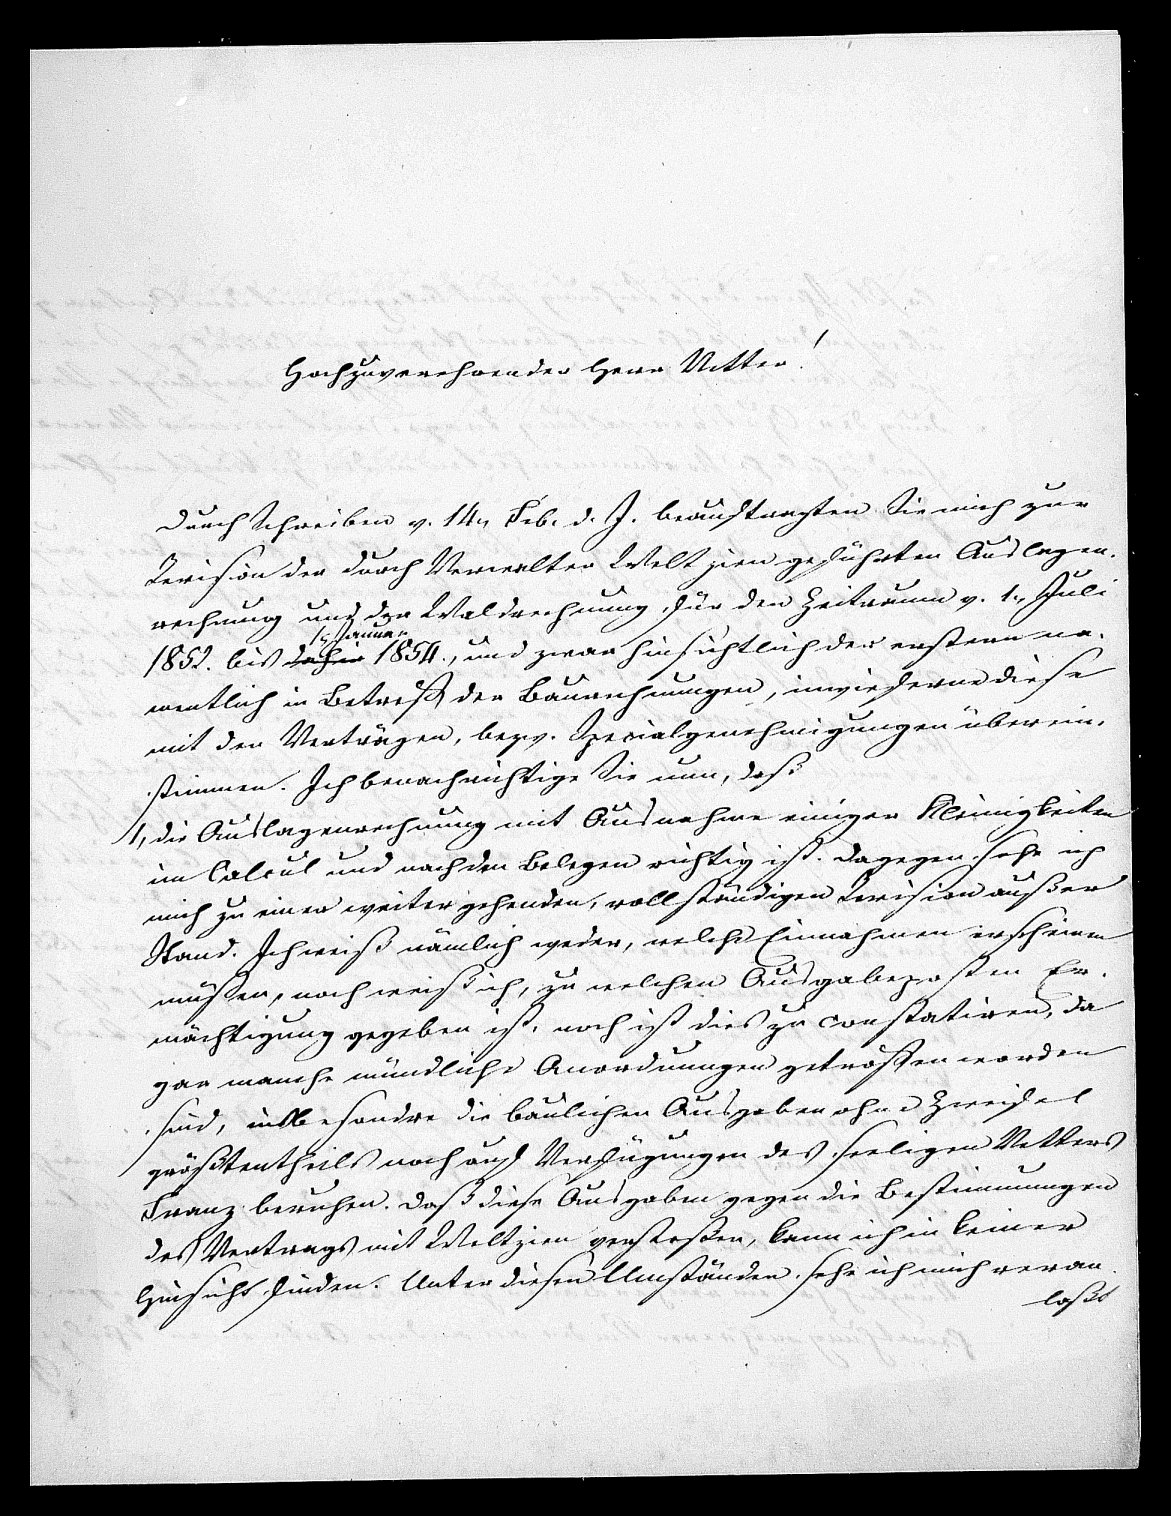 Hochzuverehrender Herr Vetter!
Durch Schreiben v. 14n Feb. d. J. beauftragten Sie mich zur
Revision der durch Verwalter Weltzien geführten Auslagen-
rechnung und der Waldrechnung für den Zeitraum v. 1n Juli
1n Januar
1852. bis dahin 1854., und zwar hinsichtlich der erstern na-
mentlich in Betreff der Baurechnungen, inwieferne diese
mit den Verträgen, bezw. Specialgenehmigungen überein-
stimmen. Ich benachrichtige Sie nun, daß
1, die Auslagenrechnung mit Ausnahme einiger Kleinigkeiten
im Calcul und nach den Belegen richtig ist. Dagegen sehe ich
mich zu einer weiter gehenden, vollständigen Revision außer
Stand. Ich weiß nämlich weder, welche Einnahmen erscheinen
müßen, noch weiß ich, zu welchen Ausgabeposten Er-
mächtigung gegeben ist, noch ist dies zu constatiren, da
gar manche mündliche Anordnungen getroffen worden
sind, insbesondre die baulichen Ausgaben ohne Zweifel
größtentheils noch auf Verfügungen des seeligen Vetters
Franz beruhen. Daß diese Ausgaben gegen die Bestimmungen
des Vertrags mit Weltzien verstoßen, kann ich in keiner
Hinsicht finden. Unter diesen Umständen sehe ich mich veran-
laßt